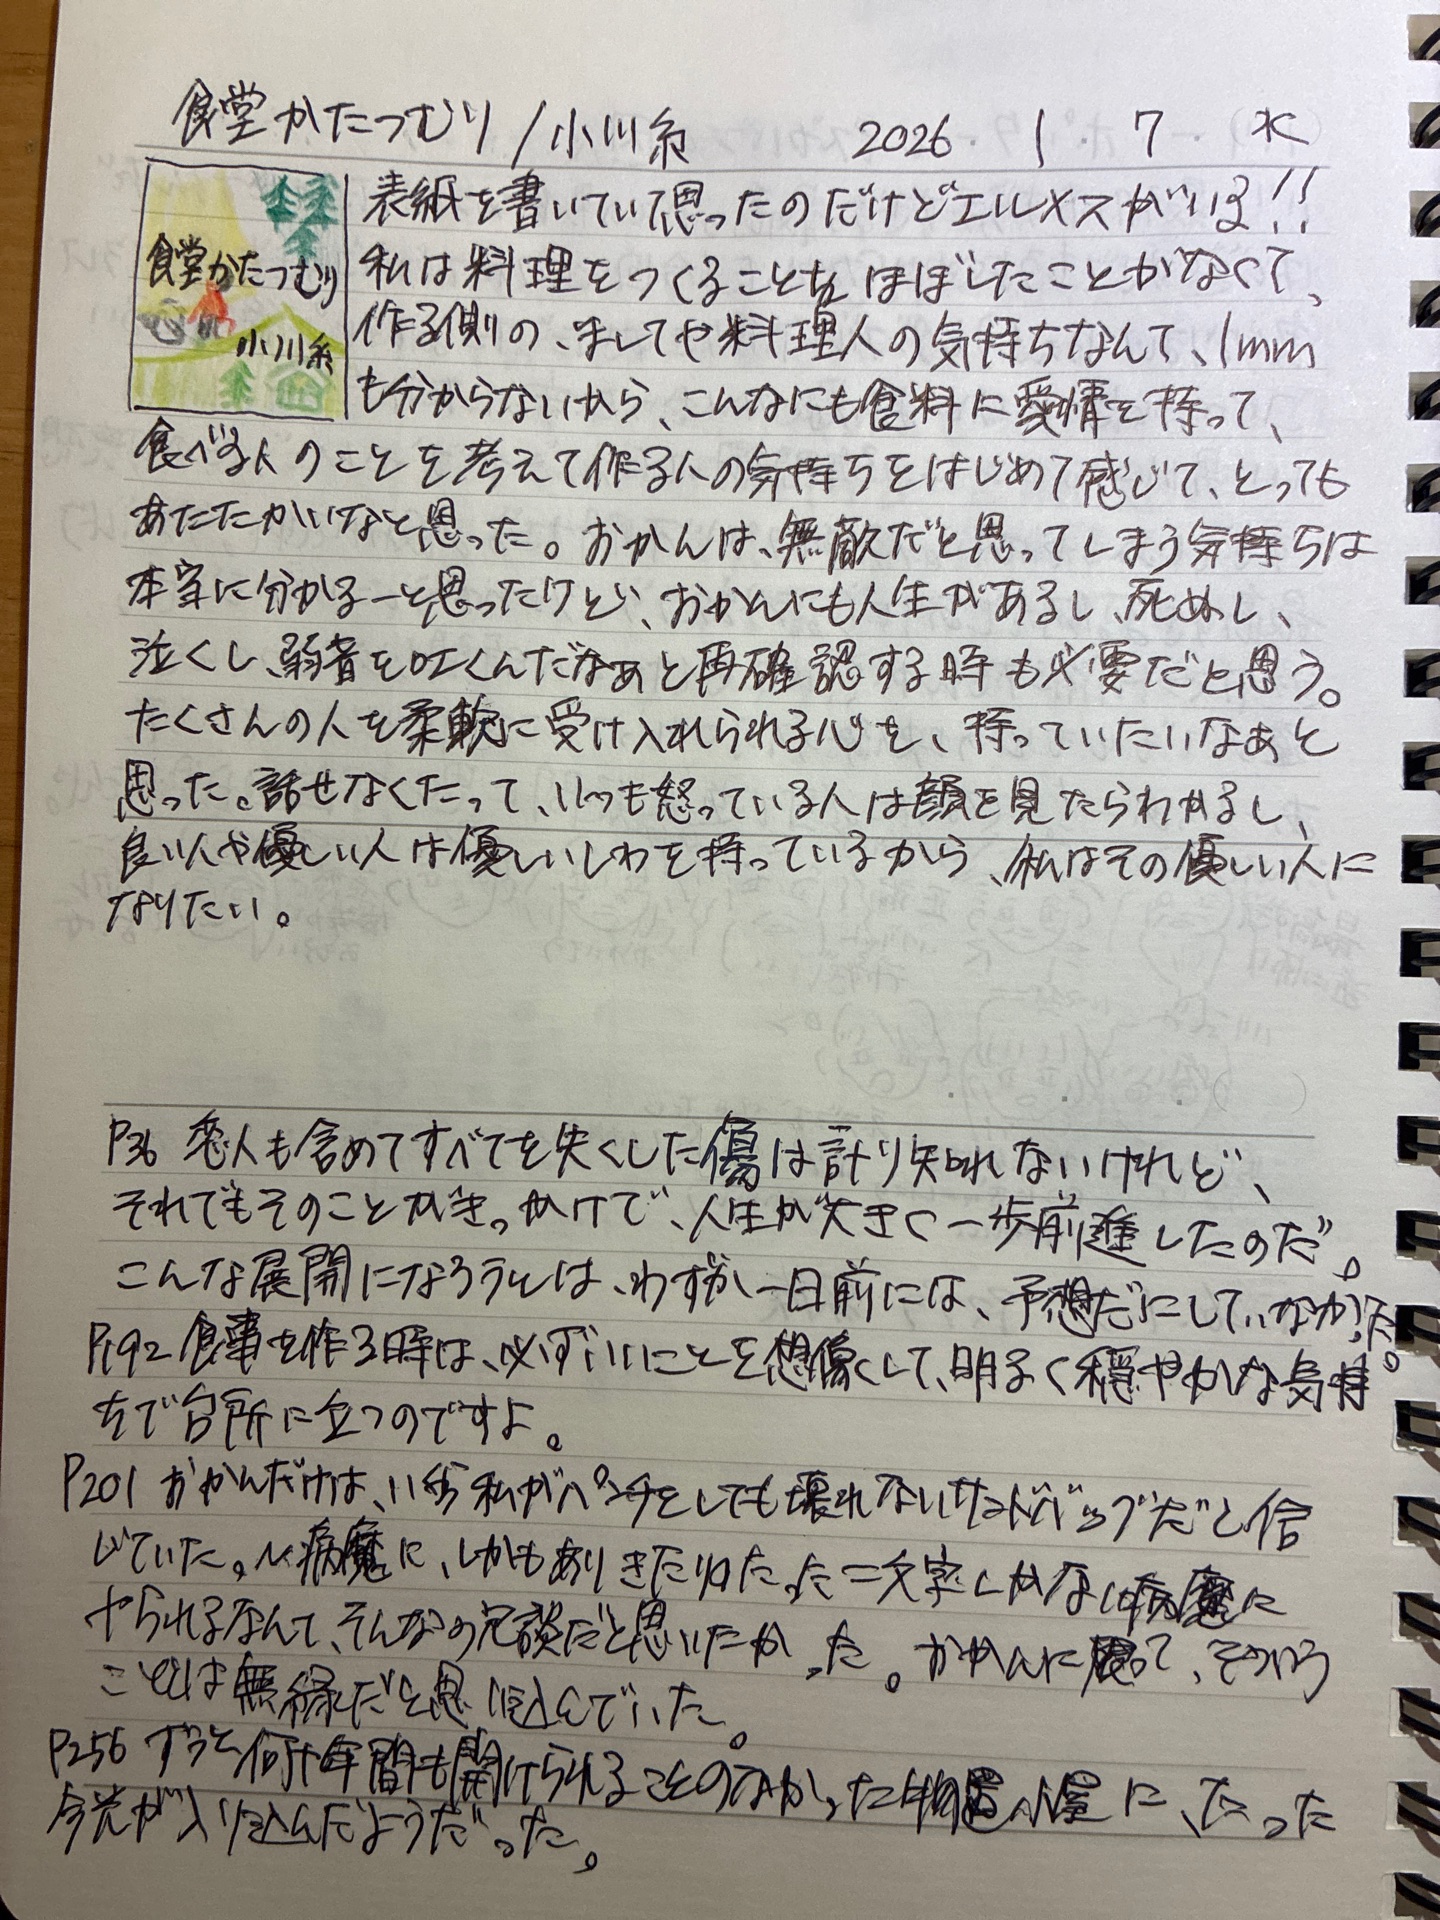 食堂かたつむり/小川糸 2026 1 7 水
食堂かたつむり
小川糸
表紙を書いていて思ったのだけどエルメスがいる!!
私は料理をつくることを、ほぼしたことがなくて、
作る側の、ましてや料理人の気持ちなんて、1mm
も分からないから、こんなにも食料に愛情を持って、
食べる人のことを考えて作る人の気持ちをはじめて感じて、とっても
あたたかいなと思った。おかんは、無敵だと思ってしまう気持ちは
本当に分かるーと思ったけど、おかんにも人生があるし、死ぬし、
泣くし、弱音を吐くんだなぁと再確認する時も必要だと思う。
たくさんの人を柔軟に受け入れられる心を、持っていたいなぁと
思った。話せなくたって、いつも怒っている人は顔を見たらわかるし、
良い人や優しい人は優しいしわを持っているから、私はその優しい人に
なりたい。
P36 恋人も含めてすべてを失くした傷は計り知れないけれど、
それでもそのことがきっかけで、人生が大きく一歩前進したのだ。
こんな展開になろうとは、わずか一日前には、予想だにしていなかった。
P192 食事を作る時は、必ずいいことを想像して、明るく穏やかな気持
ちで台所に立つのですよ。
P201 おかんだけは、いくら私がパンチをしても壊れないサンドバッグだと信
じていた。〜病魔に、しかもありきたりのたった二文字しかない病魔に
やられるなんて、そんなの冗談だと思いたかった。おかんに限って、そういう
ことは無縁だと思い込んでいた。
P256 ずっと何十年間も開けられることのなかった物置小屋に、たった
今光が入り込んだようだった。